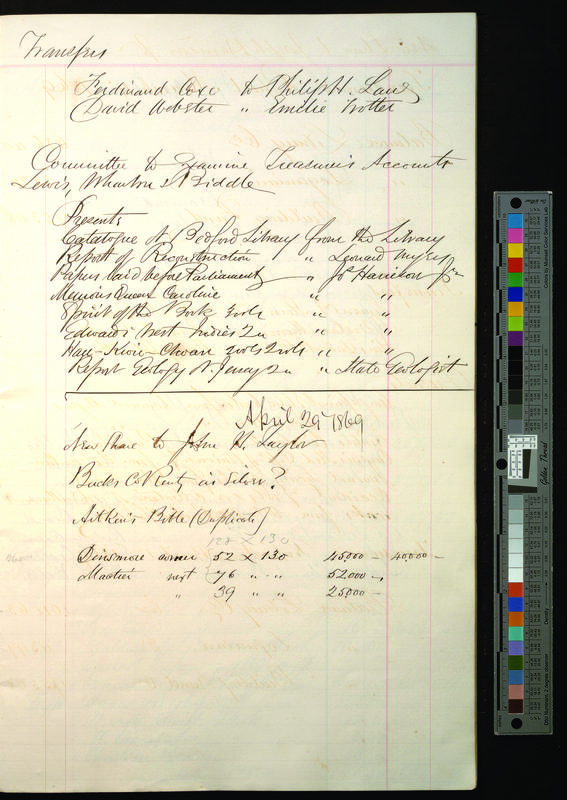 Transfers
Ferdinand Coxe to Philip H. Law
David Webster " Emelie Trotter
Committee to Examine Treasurer's Accounts
Lewis, Wharton & Biddle
Presents
Catalogue of Bedford Library from the Library
Report of Reconstruction " Leonard Myers
Papers laid before Parliament " Jos Harrison Jr
Memoirs Queen Caroline " "
Spirit of the Book " "
Edwards West Indies 2v " "
Hau-Kiou-Choan " "
Report Geology N. Jersey 2v " State Geologist
April 29 1869
New Share to John H. Taylor
Bucks Co Rent, in Silver?
Aitkin's Bible (Duplicate)
127 x 130
Dinsmore corner 52 x 130 45000 - 40.000 -
Mactier next 76 " - " 52000 -
" 39 " " 25000 -